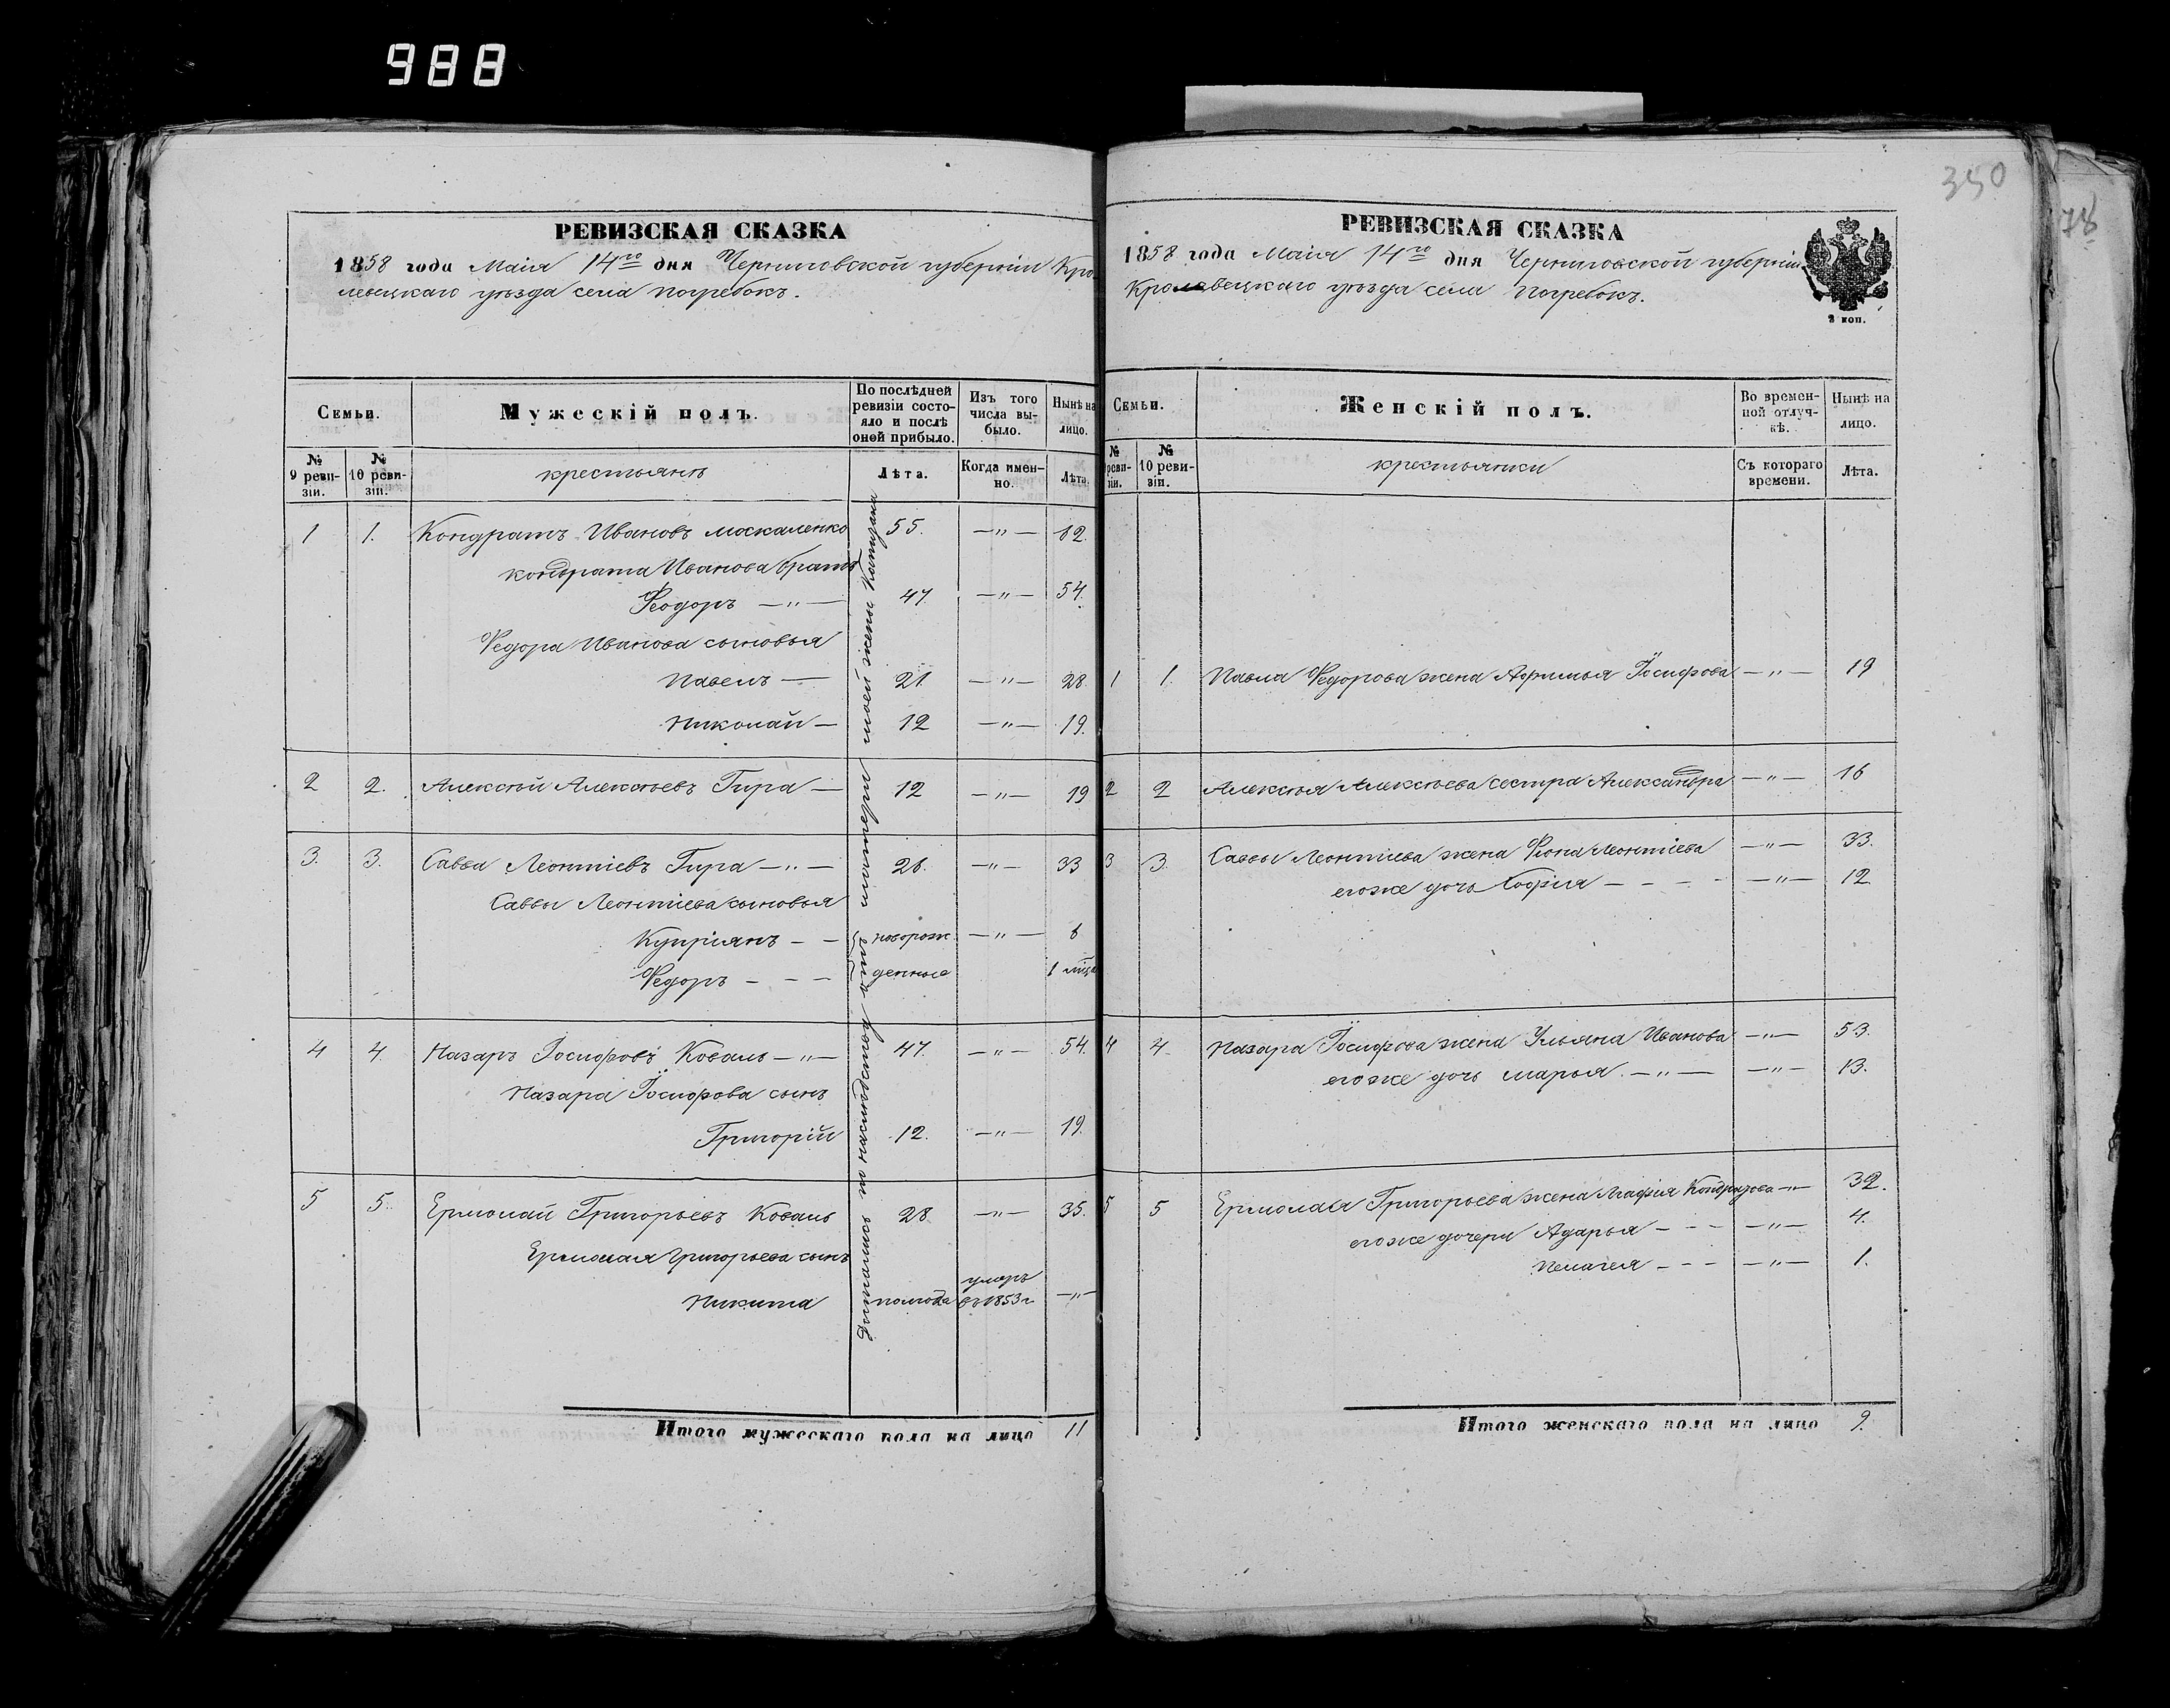 988
350
78
РЕВИЗСКАЯ СКАЗКА
1858 года Маія 14го дня Черниговской губерніи Кро
левецкаго уѣзда села Погребокъ.
Семьи.
Мужескій полъ.
По послѣдней ревизіи состояло и послѣ оной прибыло.
Изъ того числа выбыло.
Нынѣ на лицо.
№ 9 ревизіи.
№ 10 ревизіи.
крестьянъ
Лѣта.
Когда именно.
Лѣта.
1 1. Кондратъ Ивановъ Москаленко 55. —"— 62.
Кондрата Иванова братъ
Ѳеодоръ —"— 47. —"— 54.
Ѳедора Иванова сыновья
Павелъ — 21 —"— 28.
Николай — 12 —"— 19.
2 2. Алексѣй Алексѣевъ Гира — 12 —"— 19
3. 3. Савва Леонтіевъ Гира —"— 26. —"— 33
Саввы Леонтіева сыновья
Купріянъ — — новорож —"— 6
Ѳедоръ — — — денные 1 мѣся
4 4. Назаръ Іосифовъ Коваль —"— 47. —"— 54.
Назара Іосифова сынъ
Григорій 12. —"— 19.
5 5. Ермолай Григорьевъ Коваль 28 —"— 35.
Ермолая Григорьева сынъ
Никита полгода умеръ въ 1853 г. —"—
Достались по наслѣдству отъ матери моей жены
Итого мужескаго пола на лицо 11
РЕВИЗСКАЯ СКАЗКА
1858 года Маія 14го дня Черниговской губерніи
Кролевецкаго уѣзда села Погребокъ.
2 коп.
Семьи.
Женскій полъ.
Во временной отлучкѣ.
Нынѣ на лицо.
№ реви-зіи.
№ 10 ревизіи.
крестьянки
Съ котораго времени.
Лѣта.
1 1. Павла Ѳедорова жена Афимья Іосифова —"— 19
2 2 Алексѣя Алексѣева сестра Александра —"— 16
3 3. Саввы Леонтіева жена Ѳіона Леонтіева —"— 33.
егоже дочь Софія — — — — —"— 12.
4 4. Назара Іосифова жена Ульяна Иванова —"— 53.
егоже дочь Марья. —"— —"— 13.
5 5 Ермолая Григорьева жена Агафія Кондратова —"— 32.
егоже дочери Адарья — — — —"— 4.
Пелагея — — — —"— 1.
Итого женскаго пола на лицо 9.